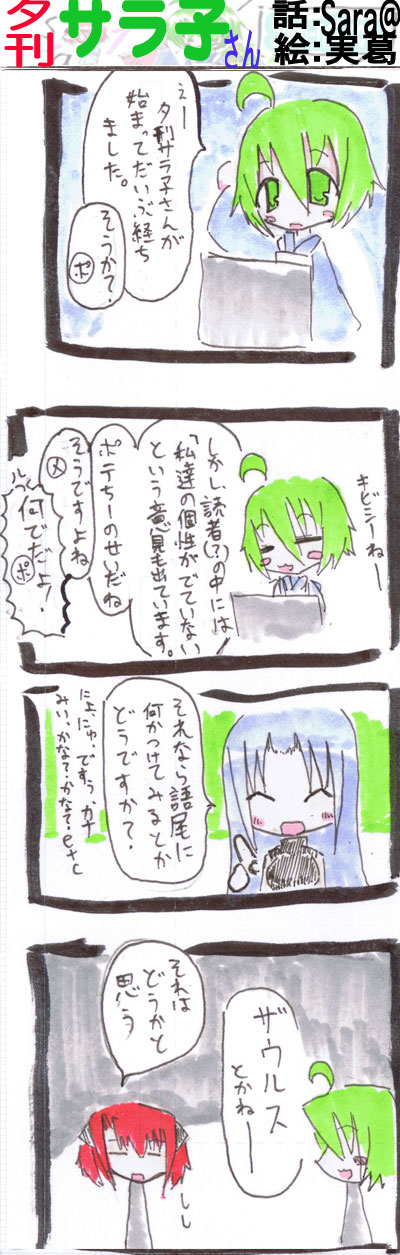 夕刊
サラ子
さん
話:Sara@
絵:実葛
えー
夕刊サラ子さんが
始まってだいぶ経ち
ました。
そうかて?
ポ
キビシーねー
しかし読者(?)の中には
「私達の個性がでていない
という意見も出ています。
ポテちーのせいだね
そうですよね
メ
何でだよ!
ポ
それなら語尾に
何かつけてみるとか
どうですかて?
にょ、にゅ、ですぅ、カナ
みぃ、かな?かな?etc
ザウルス
とかねー
それは
どうかと
思う